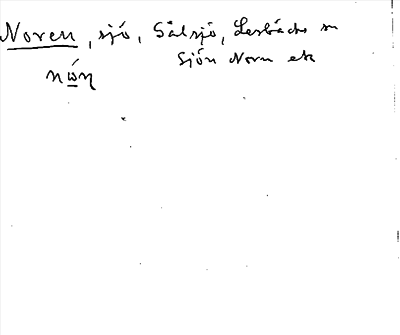 Noren, sjö, Sålsjö, Lesbäcks sn
nώη sjön Noren etc